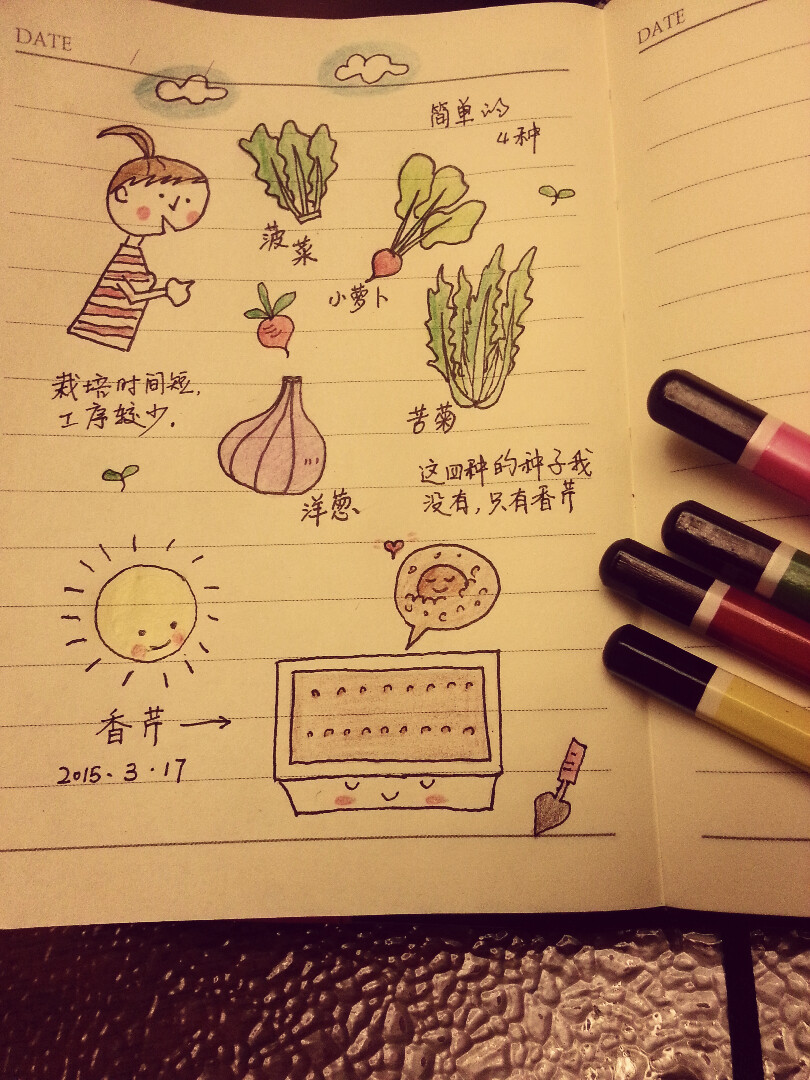 DATE
DATE
简单的
4种
菠菜
小萝卜
栽培时间短,
工序较少.
苦菊
洋葱
这四种的种子我
没有,只有香芹
香芹→
2015.3.17